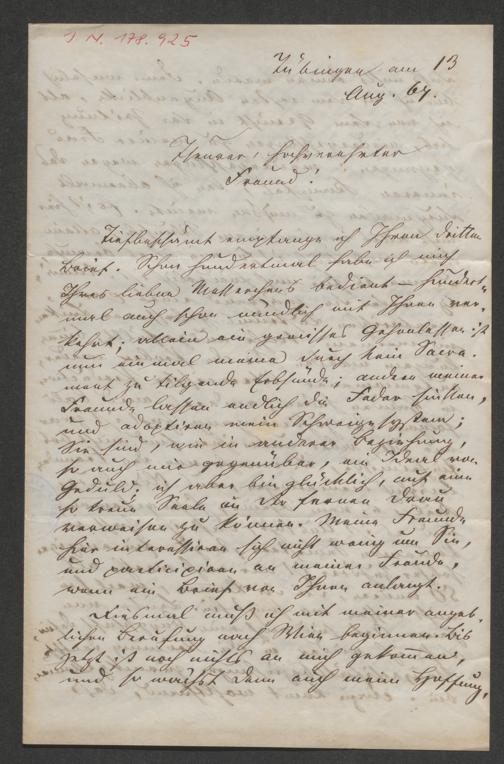 J. N. 178.925
Tübingen am 13
Aug. 64.
Theurer, hochverehrter
Freund!
Tiefbeschämt empfange ich Ihren dritten
Brief. Schon hundertmal habe ich mich
Ihres lieben bedient – hundert-
mal auch schon mündlich mit Ihnen ver-
kehrt; allein ein gewisses ist
nun einmal meine durch kein Sacra-
ment zu tilgende Erbsünde; andere meiner
Freunde lassen endlich die Feder sinken,
und adoptiren mein Schweigsystem;
Sie sind, wie in anderer Beziehung,
so auch mir gegenüber, ein Ideal von
Geduld. ich aber bin glücklich, auf eine
so treue Seele an der fernen Drau
verweisen zu können. Meine Freunde
hier interessiren sich nicht wenig um Sie,
und participiren an meiner Freude,
wenn ein Brief von Ihnen anlangt.
Diesmal muß ich mit meiner angeb-
lichen Berufung nach Wien beginnen. Bis
jetzt ist noch nichts an mich gekommen,
und so wächst denn auch meine Hoffnung,